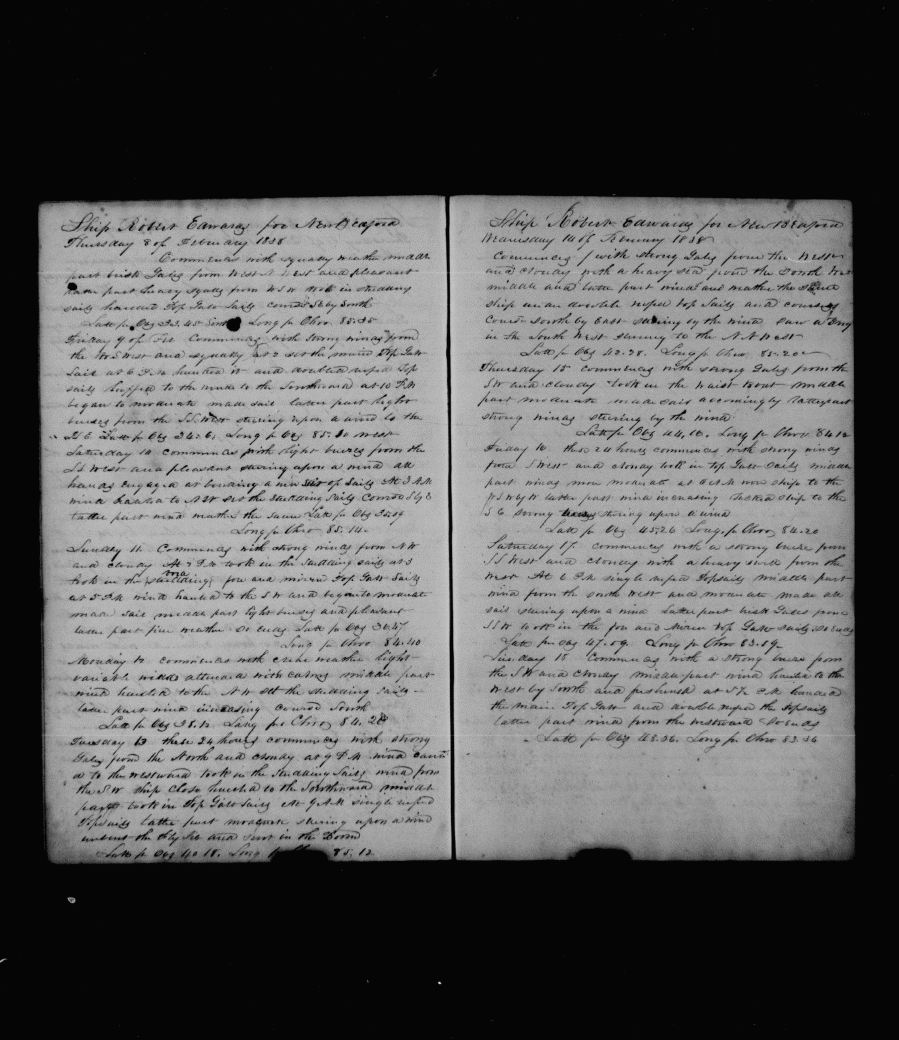 Ship Robert Edwards for New Bedford
Thursday 8 of February 1838
Commences with squally weather middle
part brisk Gales from West N West and pleasant
latter part heavy squalls from WSW took in studding
sails handed Top Galt Sails course S by South
Latt pr Obs 33.45 South Long pr Chro 85.38
Friday 9 of Feb Commences with strong winds from
the W S West and squally at 2 set the main Top Galt
Sail at 6 P.M handed it and doubled reefed Top
sails luffed to the wind to the Southward at 10 P.M
began to moderate made sail latter part light
breezes from the S S West steering upon a wind to the
S E Latt pr Obs 34.26 Long pr Obs 85.30 West
Saturday 10 commences with light breezes from the
S S West and pleasant steering upon a wind all
hands engaged at bending a new suit of Sails At 3 A.M
wind hauled to NW set the studding Sails Course S by E
Latter part wind weather the same Latt pr Obs 35.19
Long pr Chro 85.14
Sunday 11 Commences with strong winds from NW
and cloudy At 2 P.M took in the studding sails at 3
took in the studding fore and mizen Top Galt Sails
at 5 P.M wind hauled to the S W and began to moderate
mad sail middle part light breezes and pleasant
latter part fine weather So Ends Latt pr Obs 36.47
Long pr Chro 84.40
Monday 12 commences with calm weather light
variable winds attended with calms middle part
wind hauled to the N W set the studding Sails
latter part wind increasing Course South
Latt pr Obs 38.12 Long pr Chro 84.28
Tuesday 13 these 24 hours commences with strong
Gales from the North and cloudy at 9 P.M wind cant
d to the westward took in the studding Sails wind from
the S W ship close hauled to the Southward middle
part took in Top Galt Sails At 9 A.M single reefed
Topsails latter part moderate steering upon a wind
unbent the Fly Jib and sent in the Boom
Latt pr Obs 40.18 Long pr Chro 85.12
Ship Robert Edwards for New Bedford
Wednesday 14 of February 1838
Commences with strong Gales from the West
and cloudy with a heavy sea from the South West
middle and latter part winds and weather the same
ship under double reefed top Sails and courses
Course South by East steering by the wind saw a Brig
in the South West steering to the N N West
Latt pr Obs 42.28 Long pr Chro 85.20
Thursday 15 commences with strong Gales from the
S W and cloudy took in the Waist Boat middle
part moderate made Sail accordingly latter part
strong winds steering by the wind
Latt pr Obs 44.16 Long pr Chro 84.12
Friday 16 these 24 hours commences with strong winds
from S West and cloudy took in top Galt Sails middle
part winds more moderate at 6 A.M wore ship to the
W S W latter part wind increasing tacked ship to the
S E strong steering upon a wind
Latt pr Obs 45.26 Long pr Chro 84.20
Saturday 17 commences with a strong breeze from
S S West and cloudy with a heavy swell from the
West At 6 P.M single reefed Topsails middle part
wind from the South West and moderate made all
sail steering upon a wind Latter part brisk Gales from
SSW took in the fore and Mizen Top Galt sails So ends
Latt pr Obs 47.09 Long pr Chro 83.59
Sunday 18 Commences with a strong breeze from
the S W and cloudy middle part wind hauled to the
West by South and freshened at 5 ½ A.M handed
the main Top Galt and double reefed the topsails
latter part wind from the westward So ends
Latt pr Obs 48.36 Long pr Chro 83.36